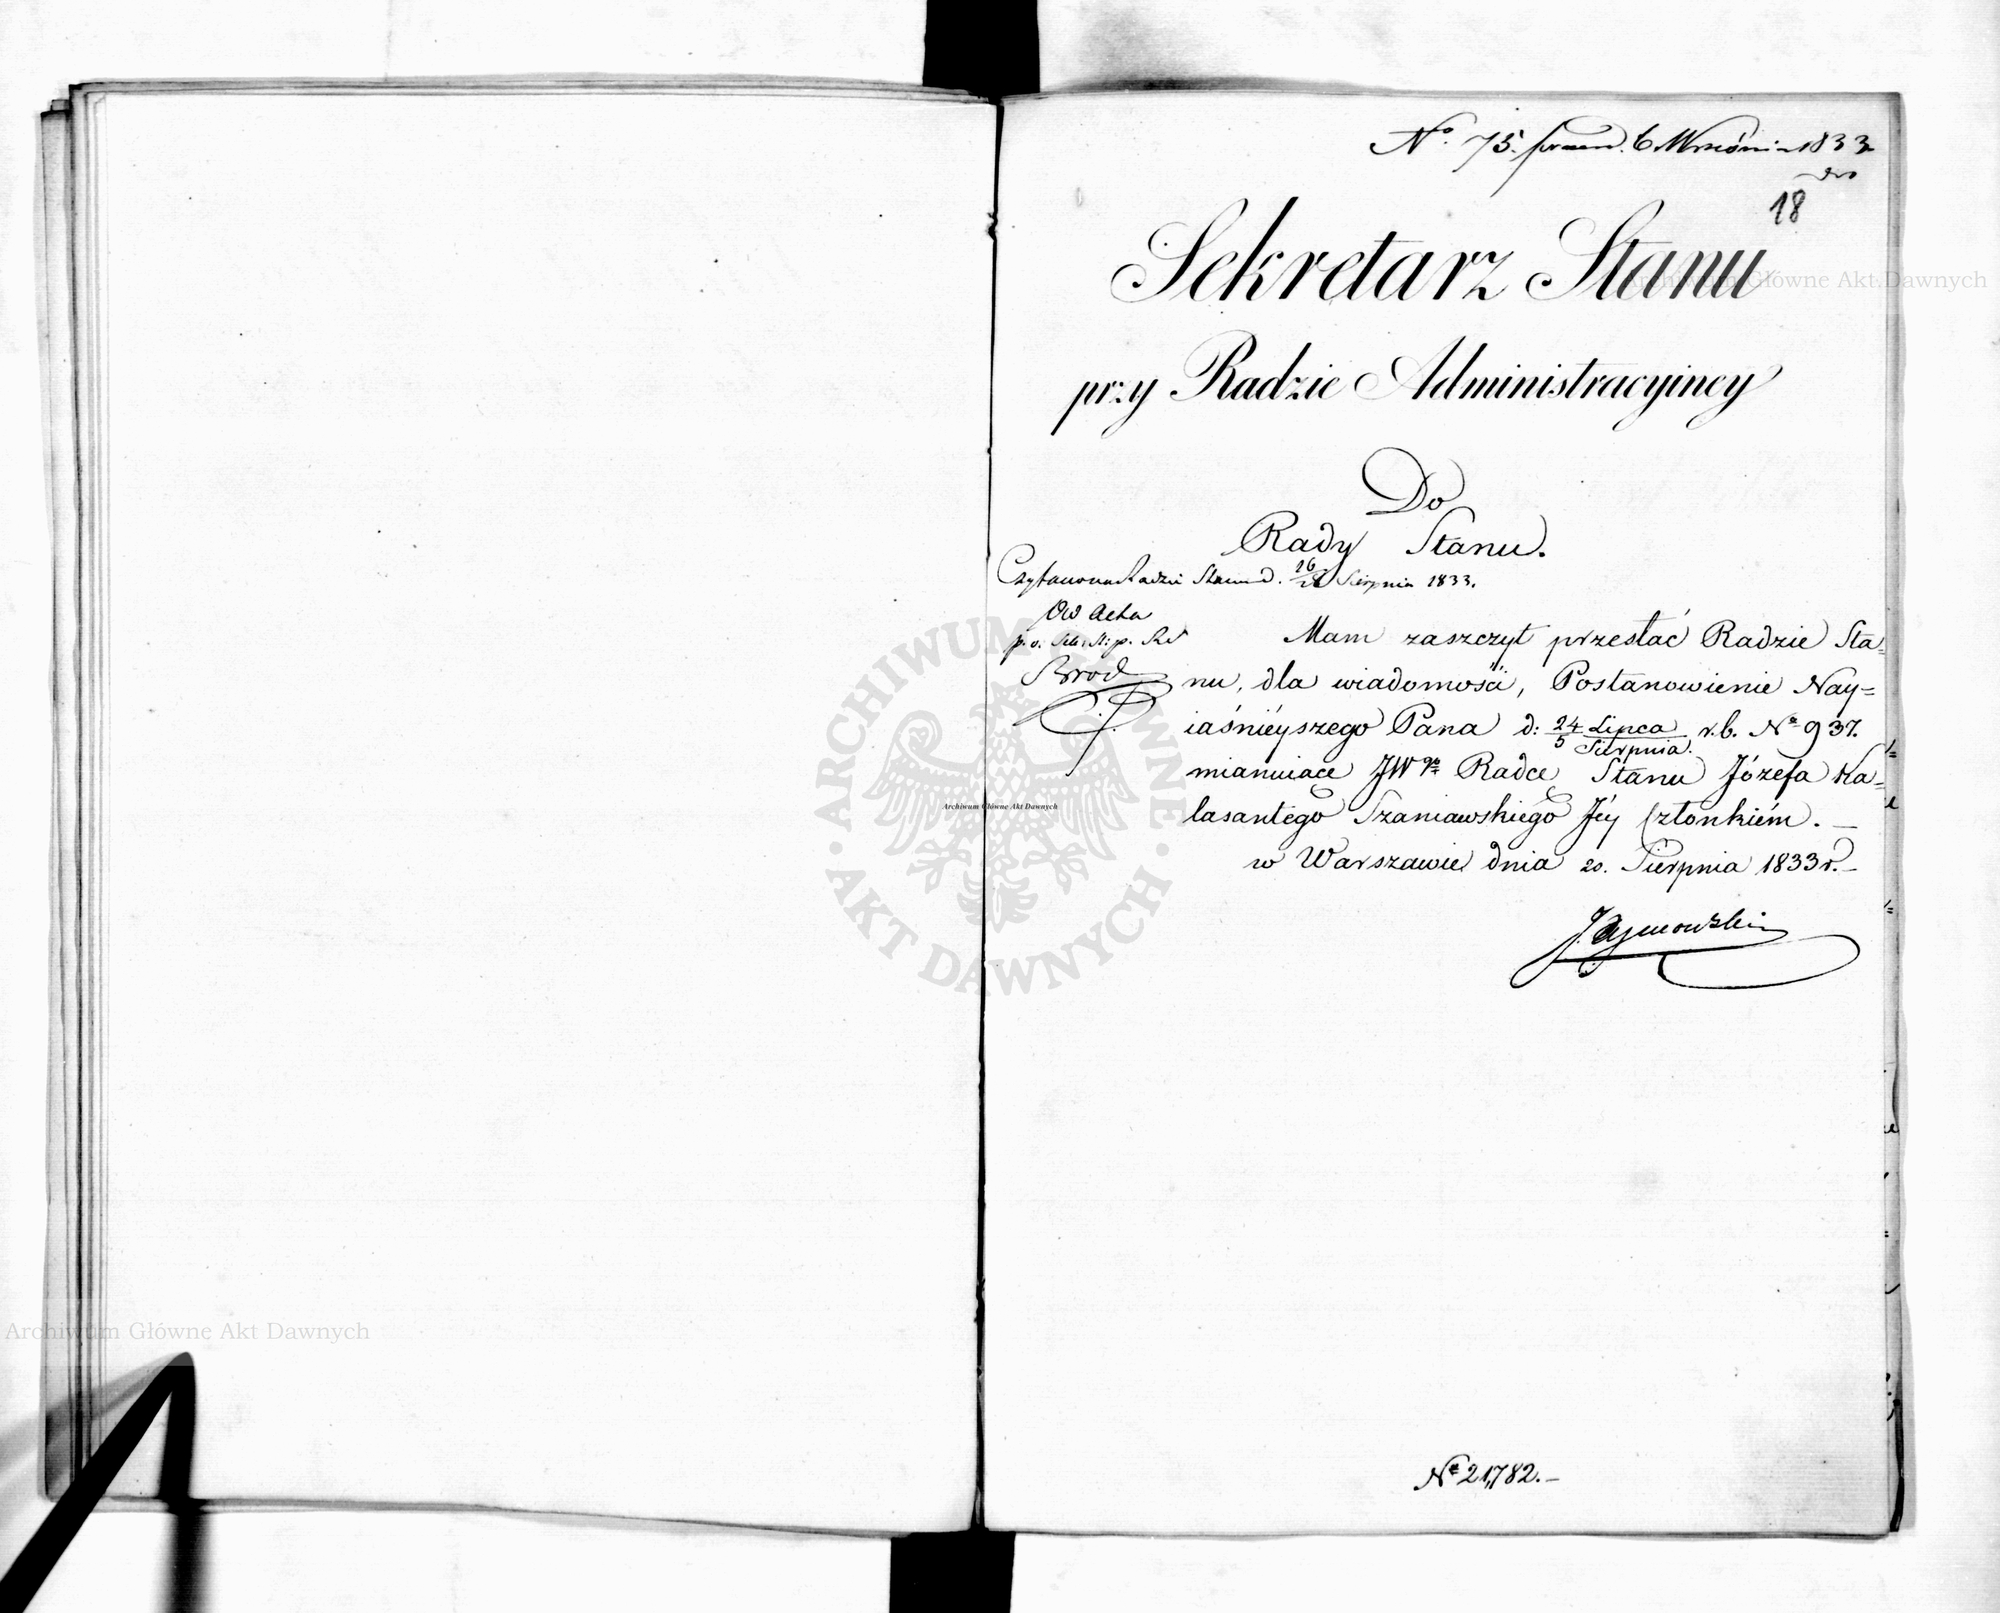 Nº 75. 6 Wrześni 1833
18
Sekretarz Stanu
przy Radzie Administracyiney
Do
Rady Stanu.
Czytano na Radzie Stanu d. 16/28 Sierpnia 1833.
Ad Acta
Mam zaszczyt przesłać Radzie Sta=
nu, dla wiadomości, Postanowienie Nay=
iaśnieyszego Pana d: 24 Lipca/5 Sierpnia r.b. Nº 937.
mianuiące JWgo Radcę Stanu Józefa Ka=
lasantego Szaniawskiego Jéy Członkiém. —
w Warszawie dnia 20. Sierpnia 1833 r. —
J. Tymowski
Nº 21,782. —
Archiwum Główne Akt Dawnych
Archiwum Główne Akt Dawnych
Archiwum Główne Akt Dawnych
ARCHIWUM GŁÓWNE
AKT DAWNYCH